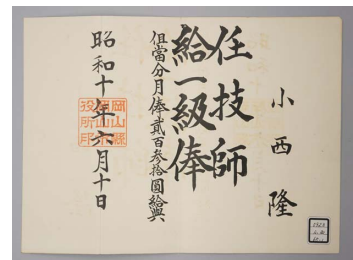 小西隆
任技師
給一級俸
但當分月俸貳百參拾圓給與
昭和十年六月十日
岡山縣
役所印